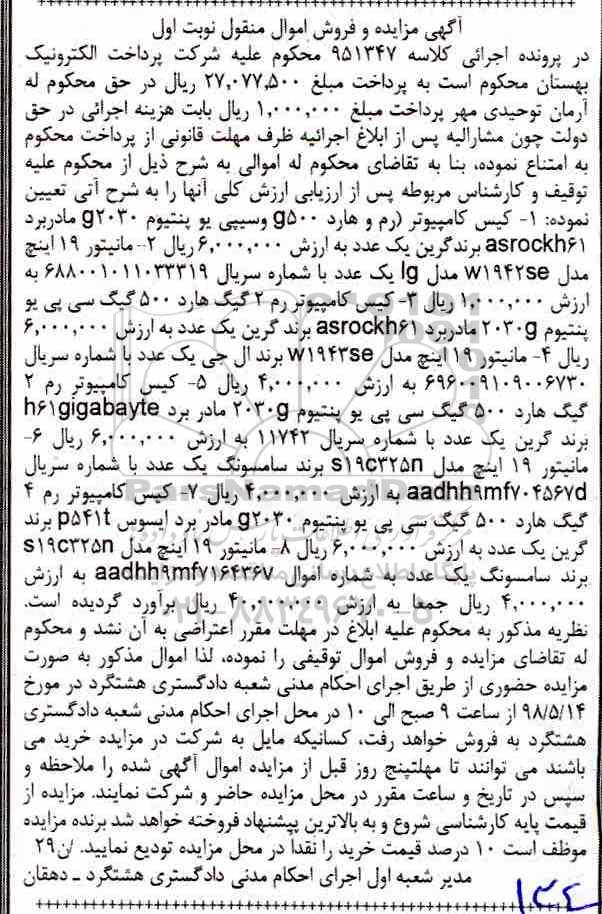 آگهی مزایده و فروش اموال منقول نوبت اول
در پرونده اجرائی کلاسه ۹۵۱۳۴۷ محکوم علیه شرکت پرداخت الکترونیک
بهستان محکوم است به پرداخت مبلغ ۲۷,۰۷۷,۵۰۰ ریال در حق محکوم له
آرمان توحیدی مهر پرداخت مبلغ ۱,۰۰۰,۰۰۰ ریال بابت هزینه اجرائی در حق
دولت چون مشارالیه پس از ابلاغ اجرائیه ظرف مهلت قانونی از پرداخت محکوم
به امتناع نموده، بنا به تقاضای محکوم له اموالی به شرح ذیل از محکوم علیه
توقیف و کارشناس مربوطه پس از ارزیابی ارزش کلی آنها را به شرح آتی تعیین
نموده: ۱- کیس کامپیوتر (رم و هارد g۵۰۰ وسیپی یو پنتیوم g۲۰۳۰ مادربرد
asrockh۶۱ برندگرین یک عدد به ارزش ۶,۰۰۰,۰۰۰ ریال ۲-- مانیتور ۱۹ اینچ
مدل w۱۹۴۲se مدل lg یک عدد با شماره سریال ۶۸۸۰۰۱۰۱۱۰۳۳۳۱۹ به
ارزش ۱,۰۰۰,۰۰۰ ریال ۳- کیس کامپیوتر رم ۲ گیگ هارد ۵۰۰ گیگ سی پی یو
پنتیوم ۲۰۳۰g مادربرد asrockh۶۱ برند گرین یک عدد به ارزش ۶,۰۰۰,۰۰۰
ریال ۴- مانیتور ۱۹ اینچ مدل w۱۹۴۳se برند ال جی یک عدد با شماره سریال
۶۹۶۰۰۹۱۰۹۰۰۶۷۳۰ به ارزش ۴,۰۰۰,۰۰۰ ریال ۵- کیس کامپیوتر رم ۲
گیگ هارد ۵۰۰ گیگ سی پی یو پنتیوم ۲۰۳۰g مادر برد h۶۱gigabayte
برند گرین یک عدد با شماره سریال ۱۱۷۴۲ به ارزش ۶,۰۰۰,۰۰۰ ریال ۶-
مانیتور ۱۹ اینچ مدل s۱۹c۳۲۵n برند سامسونگ یک عدد با شماره سریال
aadhh۹mf۷۰۴۵۶۷d به ارزش ۴,۰۰۰,۰۰۰ ریال ۷- کیس کامپیوتر رم ۴
گیگ هارد ۵۰۰ گیگ سی پی یو پنتیوم g۲۰۳۰ مادر برد ایسوس p۵۴۱t برند
گرین یک عدد به ارزش ۶,۰۰۰,۰۰۰ ریال ۸- مانیتور ۱۹ اینچ مدل s۱۹c۳۲۵n
برند سامسونگ یک عدد به شماره اموال aadhh۹mf۷۱۶۴۳۶۷ به ارزش
۴,۰۰۰,۰۰۰ ریال جمعا به ارزش ۴۰,۰۰۰,۰۰۰ ریال برآورد گردیده است.
نظریه مذکور به محکوم علیه ابلاغ در مهلت مقرر اعتراضی به آن نشد و محکوم
له تقاضای مزایده و فروش اموال توقیفی را نموده، لذا اموال مذکور به صورت
مزایده حضوری از طریق اجرای احکام مدنی شعبه دادگستری هشتگرد در مورخ
۹۸/۵/۱۴ از ساعت ۹ صبح الی ۱۰ در محل اجرای احکام مدنی شعبه دادگستری
هشتگرد به فروش خواهد رفت، کسانیکه مایل به شرکت در مزایده خرید می
باشند می توانند تا مهلتپنج روز قبل از مزایده اموال آگهی شده را ملاحظه و
سپس در تاریخ و ساعت مقرر در محل مزایده حاضر و شرکت نمایند. مزایده از
قیمت پایه کارشناسی شروع و به بالاترین پیشنهاد فروخته خواهد شد برنده مزایده
موظف است ۱۰ درصد قیمت خرید را نقدا در محل مزایده تودیع نمایید. /ن۲۹
مدیر شعبه اول اجرای احکام مدنی دادگستری هشتگرد ـ دهقان
۱۳۴